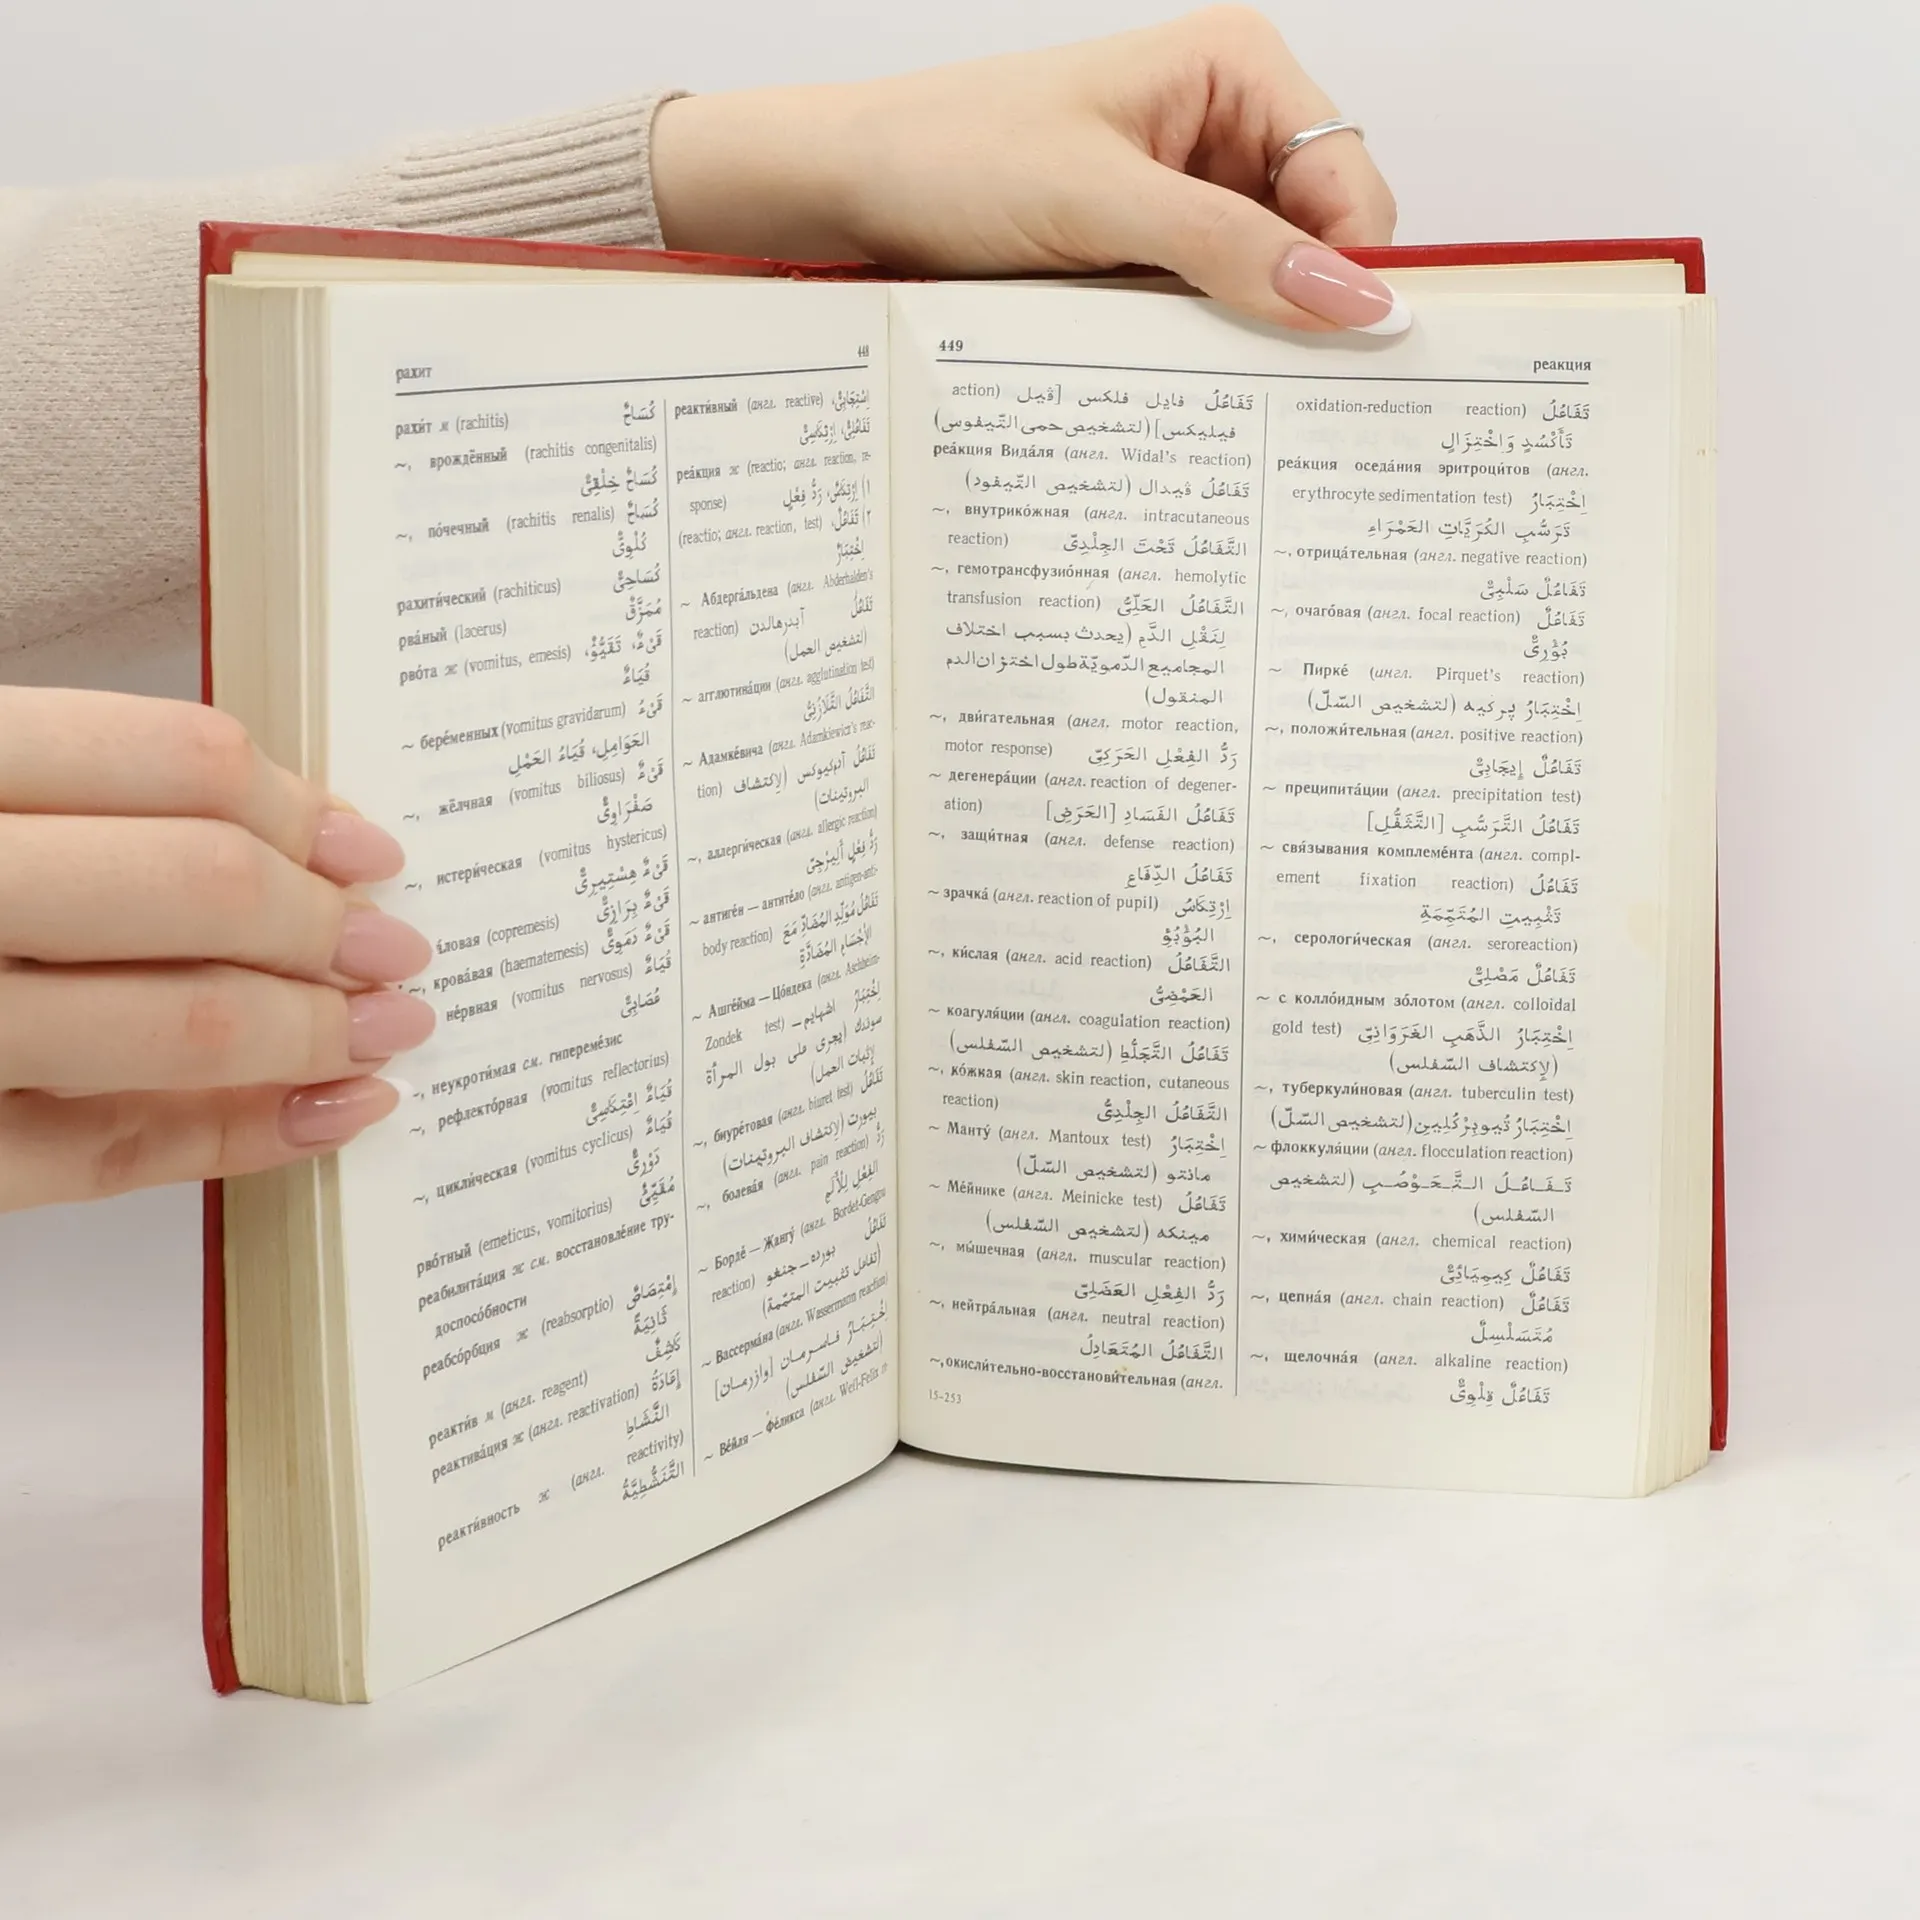 рахит
448
рахи́т м (rachitis) كُسَاحٌ
~, врождённый (rachitis congenitalis)
كُسَاحٌ خِلْقِيٌّ
~, по́чечный (rachitis renalis) كُسَاحٌ
كُلْوِيٌّ
рахити́ческий (rachiticus) كُسَاحِيٌّ
рва́ный (lacerus) مُمَزَّقٌ
рво́та ж (vomitus, emesis) قَيْءٌ، تَقَيُّؤٌ،
قُيَاءٌ
~ бере́менных (vomitus gravidarum) قَيْءُ
الحَوَامِلِ، قُيَاءُ الحَمْلِ
~, жёлчная (vomitus biliosus) قَيْءٌ
صَفْرَاوِيٌّ
~, истери́ческая (vomitus hystericus)
قَيْءٌ هِسْتِيرِيٌّ
а́ловая (copremesis) قَيْءٌ بِرَازِيٌّ
~, крова́вая (haematemesis) قَيْءٌ دَمَوِيٌّ
не́рвная (vomitus nervosus) قُيَاءٌ
عُصَابِيٌّ
~, неукроти́мая см. гипереме́зис
~, рефлекто́рная (vomitus reflectorius)
قُيَاءٌ اِنْعِكَاسِيٌّ
~, цикли́ческая (vomitus cyclicus) قُيَاءٌ
دَوْرِيٌّ
рво́тный (emeticus, vomitorius) مُقَيِّئٌ
реабилита́ция ж см. восстановле́ние тру-
доспосо́бности
реабсо́рбция ж (reabsorptio) اِمْتِصَاصٌ
ثَانِيَةً
реакти́в м (англ. reagent) كَاشِفٌ
реактива́ция ж (англ. reactivation) إِعَادَةُ
النَّشَاطِ
реакти́вность ж (англ. reactivity)
التَّنَشُّطِيَّةُ
реакти́вный (англ. reactive) اِسْتِجَابِيٌّ،
تَفَاعُلِيٌّ، اِرْتِكَاسِيٌّ
реа́кция ж (reactio; англ. reaction, re-
sponse) ١) اِرْتِكَاسٌ، رَدُّ فِعْلٍ
(reactio; англ. reaction, test) ٢) تَفَاعُلٌ،
اِخْتِبَارٌ
~ Абдерга́льдена (англ. Abderhalden's
reaction) تَفَاعُلُ آبدرهالدن
(لتشخيص الحمل)
~ агглютина́ции (англ. agglutination test)
التَّفَاعُلُ التَّلَازُنِيُّ
~ Адамке́вича (англ. Adamkiewicz's reac-
tion) تَفَاعُلُ آدمكيوكس (لإكتشاف
البروتينات)
~, аллерги́ческая (англ. allergic reaction)
رَدُّ فِعْلٍ أَلِيرْجِيٌّ
~ антиге́н — антите́ло (англ. antigen-anti-
body reaction) تَفَاعُلُ مُوَلِّدِ المُضَادِّ مَعَ
الأَجْسَامِ المُضَادَّةِ
~ Ашге́йма — Цо́ндека (англ. Aschheim-
Zondek test) اِخْتِبَارُ اشهايم —
سوندك (يجرى على بول المرأة
لإثبات الحمل)
~, биуре́товая (англ. biuret test) تَفَاعُلُ
بيورت (لإكتشاف البروتينات)
~, болева́я (англ. pain reaction) رَدُّ
الفِعْلِ لِلْأَلَمِ
~ Борде́ — Жангу́ (англ. Bordet-Gengou
reaction) تَفَاعُلُ بورده — جنغو
(تفاعل تثبيت المتمّمة)
~ Вассерма́на (англ. Wassermann reaction)
اِخْتِبَارُ فاسرمان [وازرمان]
(لتشخيص السّفلس)
~ Ве́йля — Фе́ликса (англ. Weil-Felix re
449
реакция
action) تَفَاعُلُ فايل فلكس [ڤيل
فيليكس] (لتشخيص حمى التّيفوس)
реа́кция Вида́ля (англ. Widal's reaction)
تَفَاعُلُ ڤيدال (لتشخيص التّيفود)
~, внутрико́жная (англ. intracutaneous
reaction) التَّفَاعُلُ تَحْتَ الجِلْدِيّ
~, гемотрансфузио́нная (англ. hemolytic
transfusion reaction) التَّفَاعُلُ الحَلِّيُّ
لِنَقْلِ الدَّمِ (يحدث بسبب اختلاف
المجاميع الدّمويّة طول اختزان الدم
المنقول)
~, дви́гательная (англ. motor reaction,
motor response) رَدُّ الفِعْلِ الحَرَكِيّ
~ дегенера́ции (англ. reaction of degener-
ation) تَفَاعُلُ الفَسَادِ [الحَرَضِ]
~, защи́тная (англ. defense reaction)
تَفَاعُلُ الدِّفَاعِ
~ зрачка́ (англ. reaction of pupil) اِرْتِكَاسُ
البُؤْبُؤِ
~, ки́слая (англ. acid reaction) التَّفَاعُلُ
الحَمْضِيُّ
~ коагуля́ции (англ. coagulation reaction)
تَفَاعُلُ التَّجَلُّطِ (لتشخيص السّفلس)
~, ко́жная (англ. skin reaction, cutaneous
reaction) التَّفَاعُلُ الجِلْدِيُّ
~ Манту́ (англ. Mantoux test) اِخْتِبَارُ
مانتو (لتشخيص السّلّ)
~ Ме́йнике (англ. Meinicke test) تَفَاعُلُ
مينكه (لتشخيص السّفلس)
~, мы́шечная (англ. muscular reaction)
رَدُّ الفِعْلِ العَضَلِيّ
~, нейтра́льная (англ. neutral reaction)
التَّفَاعُلُ المُتَعَادِلُ
~, окисли́тельно-восстанови́тельная (англ.
15-253
oxidation-reduction reaction) تَفَاعُلُ
تَأَكْسُدٍ وَاخْتِزَالٍ
реа́кция оседа́ния эритроци́тов (англ.
erythrocyte sedimentation test) اِخْتِبَارُ
تَرَسُّبِ الكُرَيَّاتِ الحَمْرَاءِ
~, отрица́тельная (англ. negative reaction)
تَفَاعُلٌ سَلْبِيٌّ
~, очаго́вая (англ. focal reaction) تَفَاعُلٌ
بُؤْرِيٌّ
~ Пирке́ (англ. Pirquet's reaction)
اِخْتِبَارُ پركيه (لتشخيص السّلّ)
~, положи́тельная (англ. positive reaction)
تَفَاعُلٌ إِيجَابِيٌّ
~ преципита́ции (англ. precipitation test)
تَفَاعُلُ التَّرَسُّبِ [التَّثَفُّلِ]
~ свя́зывания комплеме́нта (англ. compl-
ement fixation reaction) تَفَاعُلُ
تَثْبِيتِ المُتَمِّمَةِ
~, серологи́ческая (англ. seroreaction)
تَفَاعُلٌ مَصْلِيٌّ
~ с колло́идным зо́лотом (англ. colloidal
gold test) اِخْتِبَارُ الذَّهَبِ الغَرَوَانِيّ
(لإكتشاف السّفلس)
~, туберкули́новая (англ. tuberculin test)
اِخْتِبَارُ تُيوبِرْكُلِين (لتشخيص السّلّ)
~ флоккуля́ции (англ. flocculation reaction)
تَفَاعُلُ التَّحَوْصُبِ (لتشخيص
السّفلس)
~, хими́ческая (англ. chemical reaction)
تَفَاعُلٌ كِيمِيَائِيٌّ
~, цепна́я (англ. chain reaction) تَفَاعُلٌ
مُتَسَلْسِلٌ
~, щелочна́я (англ. alkaline reaction)
تَفَاعُلٌ قِلْوِيٌّ